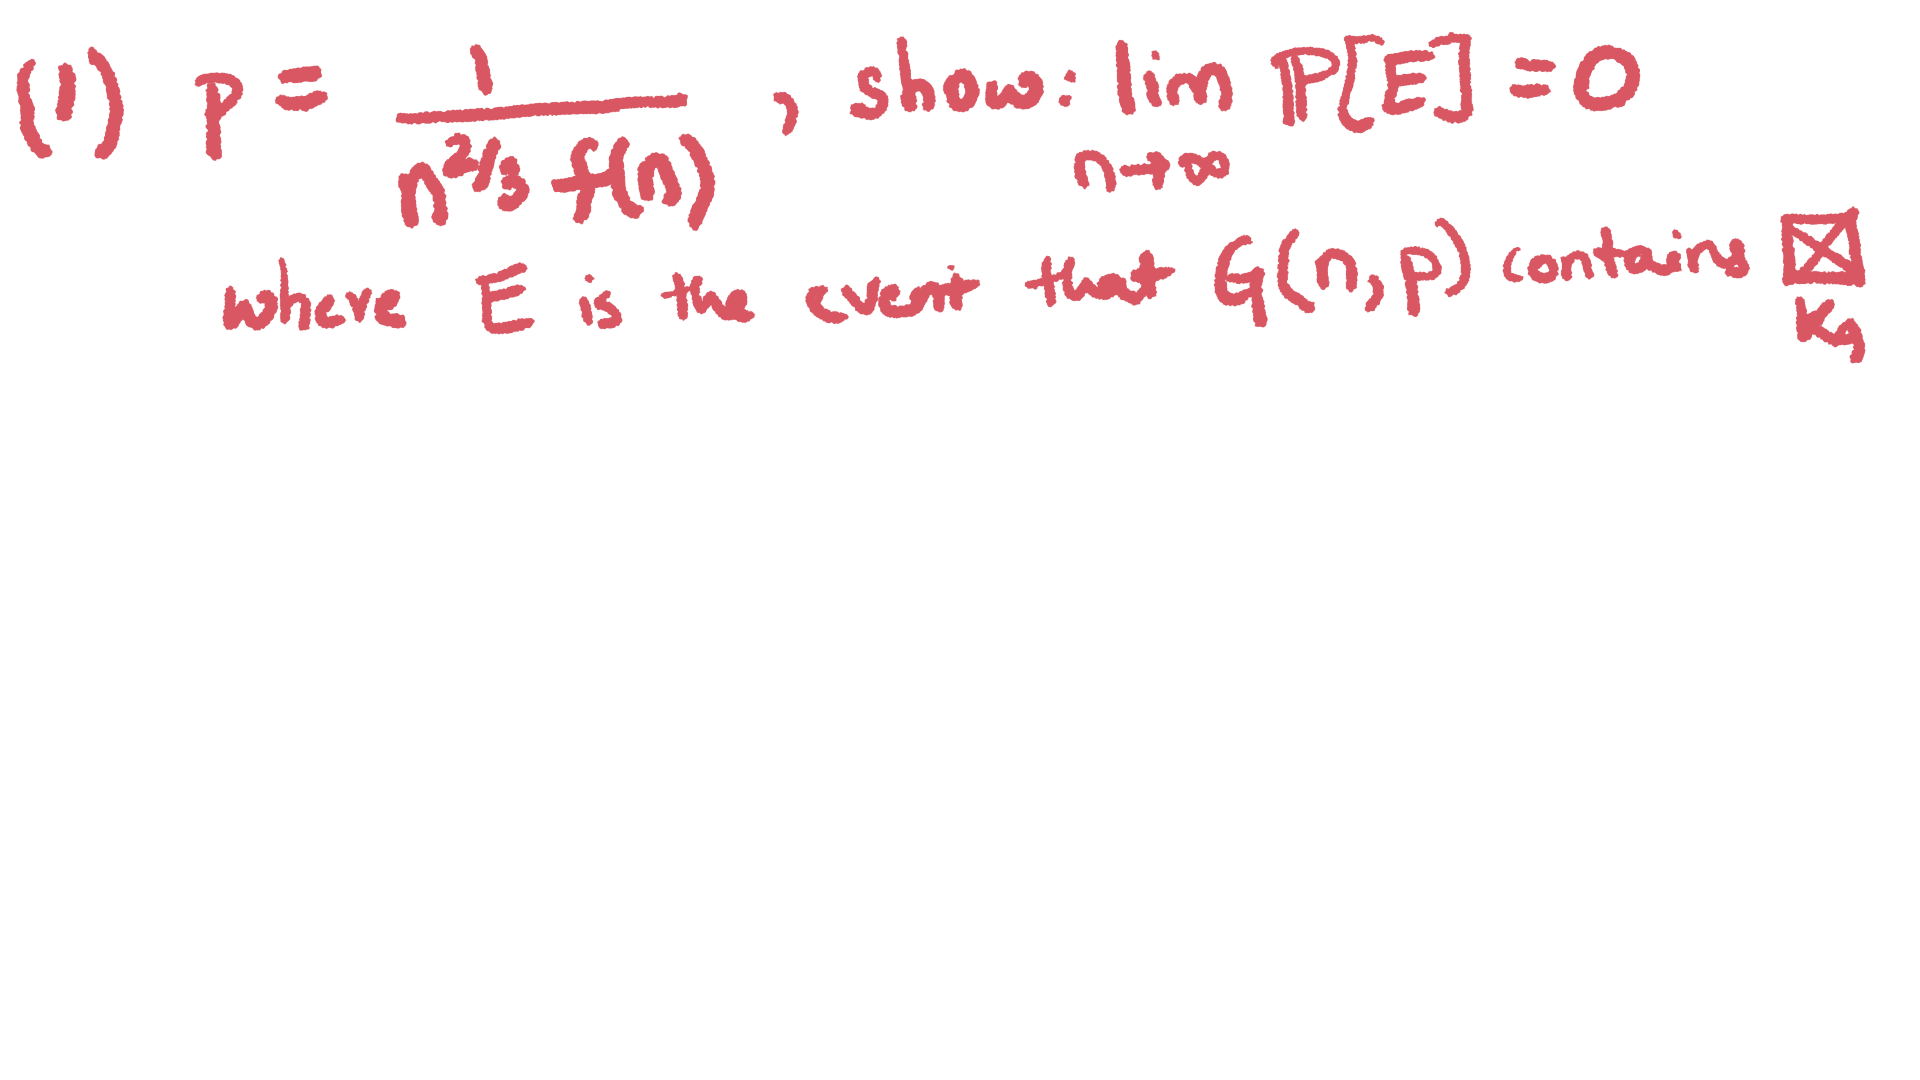 (1) p = 1 / (n^{2/3} f(n)) , show: lim_{n→∞} ℙ[E] = 0
where E is the event that G(n,p) contains
K₄